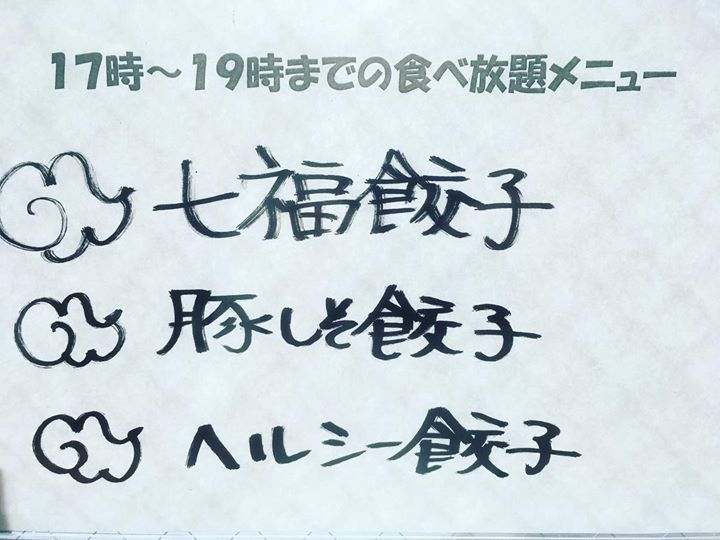 17時～19時までの食べ放題メニュー
七福餃子
豚しそ餃子
ヘルシー餃子